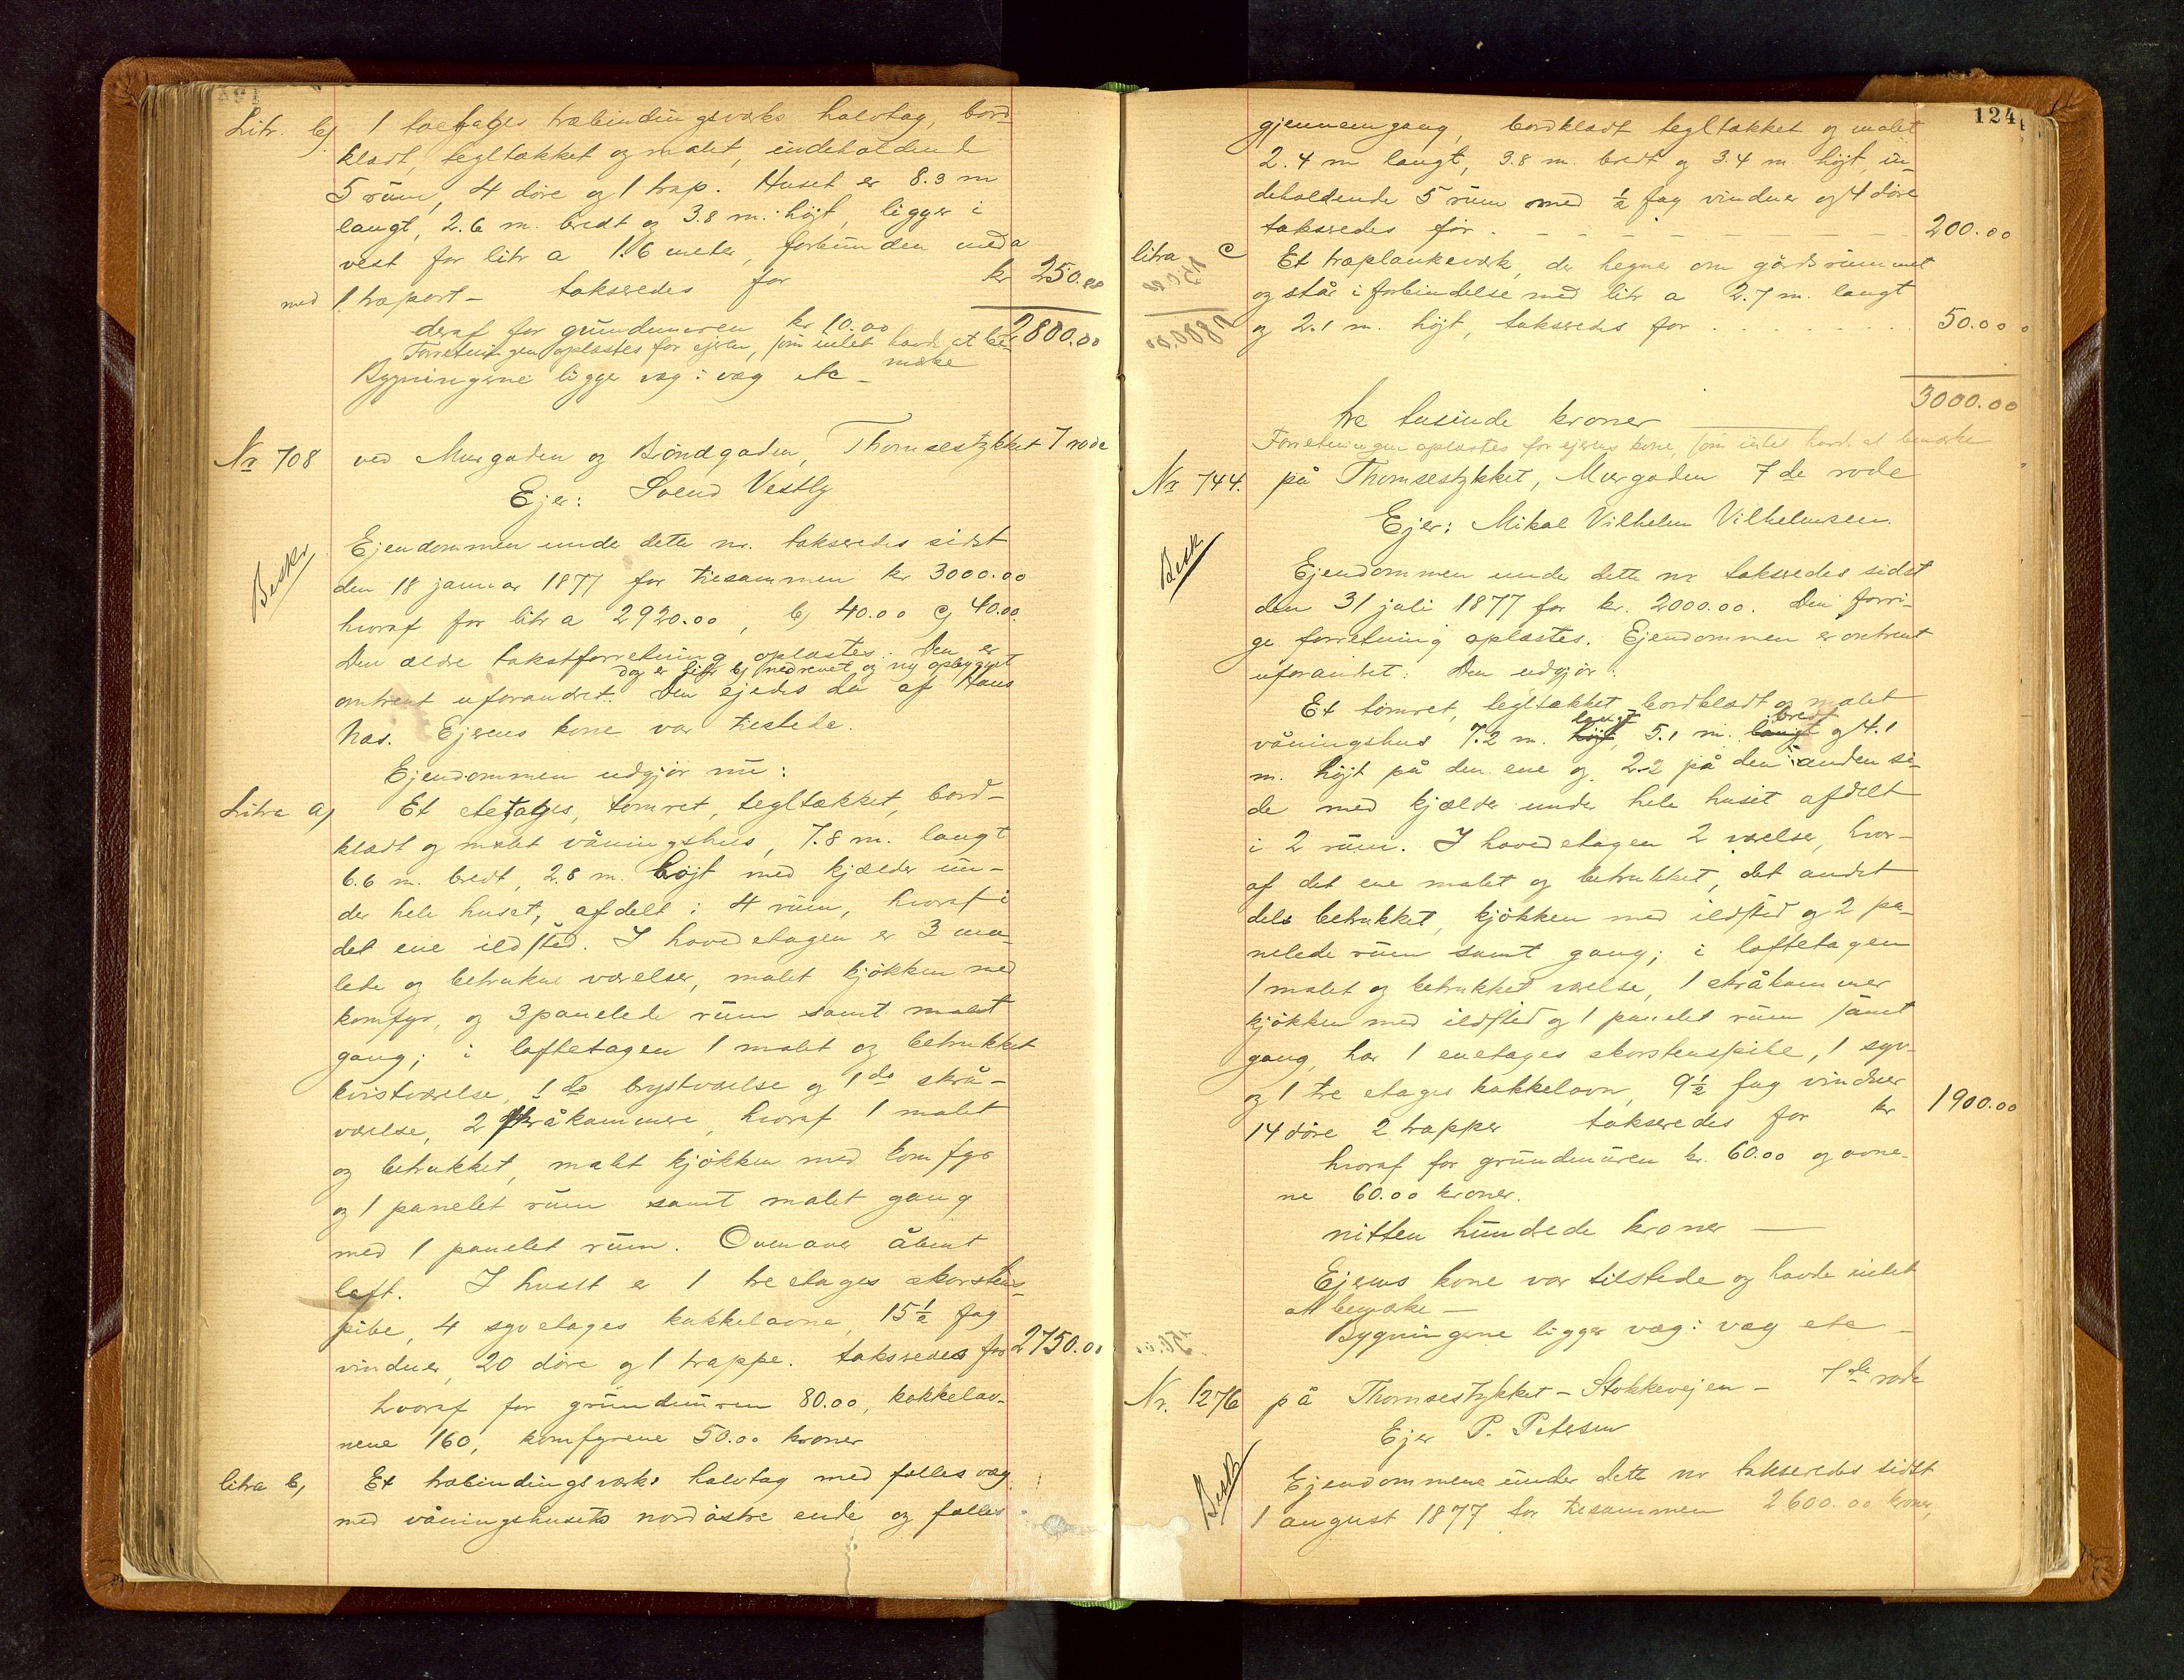 Litr. b) 1 toetages træbindingsverks halvtag, bord-
klædt, tegltækket og malet, indeholdende
5 rüm, 4 döre og 1 trap. Huset er 8.3 m
langt, 2.6 m. bredt og 3.8 m. höjt, ligger i
vest for litr a 1.6 meter, forbünden med a
med 1 træport - takseredes for kr 250.00
deraf for gründmuren kr 10.00 2800.00
Forretningen oplæstes for ejeren, som intet havde at be-
mærke
Bygningerne ligger væg i væg etc -
Nr 708 ved Murgaden og Böndgaden, Thomsestykket 7 rode
Ejer: Svend Vestly
Beskr
Ejendommen unde dette nr. takseredes sidst
den 18 januar 1877 for tilsammen kr 3000.00
hvoraf for litr a 2920.00, b) 40.00 c) 40.00.
Den ældre takstforretning oplæstes. Den er
dog er litr b) nedrevet og ny opbygget
omtrent uforandret. Den ejedes da af Hans
Næs. Ejerens kone var tilstede.
Ejendommen udgjör nü:
Litra a) Et etetages, tömret, tegltækket, bord-
klædt og malet våningshus, 7.8 m. langt
6.6 m. bredt, 2.8 m. höjt med kjælder ün-
der hele huset, afdelt i 4 rüm, hvoraf i
det ene ildsted. I hovedetagen er 3 ma-
lede og betrukne værelser, malet kjökken med
komfyr, og 3 panelede rüm samt malet
gang; i loftetagen 1 malet og betrukket
kvistværelse, 1 do brystværelse og 1 do skrå-
værelse, 2 skråkammere, hvoraf 1 malet
og betrukket, malet kjökken med komfyr
og 1 panelet rüm samt malet gang
med 1 panelet rüm. Ovenover åbent
loft. I huset er 1 tre etages skorstens-
pibe, 4 syvetages kakkelovne, 15½ fag
vinduer, 20 döre og 1 trappe. takseredes for 2750.00
hvoraf for gründmüren 80.00, kakkelov-
nene 160, komfyrene 50.00 kroner
litra b, Et træbindingsværks halvtag med fælles væg
med våningshusets nordöstre ende og fælles
124
gjennemgang, bordklædt tegltækket og malet
2.4 m langt, 3.8 m. bredt og 3.4 m. höjt, in-
deholdende 5 rüm med ½ fag vinduer og 4 döre
takseredes for . - - - - - 200.00
litra c Et træplankeværk, der hegner om gårdsrümmet
og står i forbindelse med litr a 2.7 m. langt
og 2.1 m. höjt, takseredes for . . . . . . . . 50.00
3000.00
tre tusinde kroner
Forretningen oplæstes for ejerens kone, som intet havde at bemærke
Nr 744. på Thomsestykket, Murgaden 7 de rode
Ejer: Mikal Vilhelm Vilhelmsen.
Besk
Ejendommen under dette nr takseredes sidst
den 31 juli 1877 for kr. 2000.00. Den forri-
ge forretning oplæstes. Ejendommen er omtrent
uforandret. Den udgjör:
Et tömret, tegltækket bordklædt og malet
langt bredt
våningshus 7.2 m. höjt, 5.1 m. langt og 4.1
m. höjt på den ene og 2.2 på den anden si-
de med kjælder under hele huset afdelt
i 2 rüm. I hovedetagen 2 værelser, hvor-
af det ene malet og betrukket, det andet
dels betrukket, kjökken med ildsted og 2 pa-
nelede rüm samt gang; i loftetagen
1 malet og betrukket værelse, 1 skråkammer
kjökken med ildsted og 1 panelet rüm samt
gang, har 1 enetages skorstenspibe, 1 syv-
og 1 tre etages kakkelovn, 9½ fag vinduer
14 döre 2 trapper takseredes for kr 1900.00
hvoraf for gründmüren kr. 60.00 og ovne-
ne 60.00 kroner.
nitten hündrede kroner —
Ejerens kone var tilstede og havde intet
att bemærke —
Bygningerne ligger væg i væg etc -
Nr. 1276 på Thomsestykket - Stokkevejen - 7de rode
Ejer P. Petersen
Beskr
Ejendommene ünder dette nr takseredes sidst
1 august 1877 for tilsammen 2600.00 kroner,